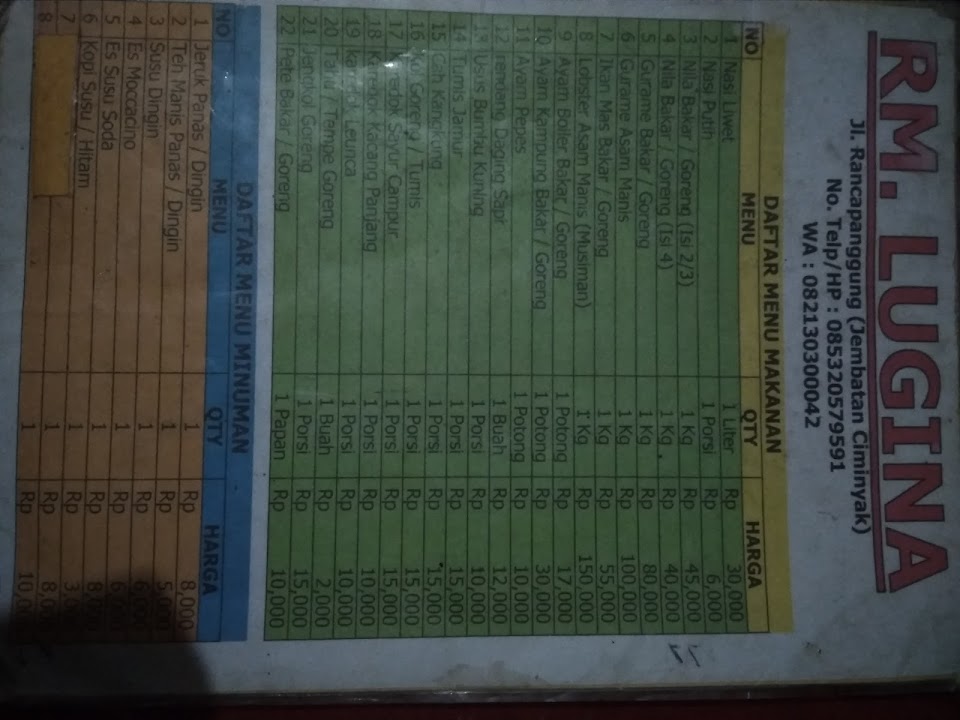 RM. LUGINA
Jl. Rancapanggung (Jembatan Ciminyak)
No. Telp/HP : 085320579591
WA : 082130300042
DAFTAR MENU MAKANAN
NO MENU QTY HARGA
1 Nasi Liwet 1 Liter Rp 30,000
2 Nasi Putih 1 Porsi Rp 6,000
3 Nila Bakar / Goreng (Isi 2/3) 1 Kg Rp 45,000
4 Nila Bakar / Goreng (Isi 4) 1 Kg Rp 40,000
5 Gurame Bakar / Goreng 1 Kg Rp 80,000
6 Gurame Asam Manis 1 Kg Rp 100,000
7 Ikan Mas Bakar / Goreng 1 Kg Rp 55,000
8 Lobster Asam Manis (Musiman) 1 Kg Rp 150,000
9 Ayam Boiler Bakar / Goreng 1 Potong Rp 17,000
10 Ayam Kampung Bakar / Goreng 1 Potong Rp 30,000
11 Ayam Pepes 1 Potong Rp 10,000
12 Gendang Daging Sapi 1 Buah Rp 12,000
13 Usus Bumbu Kuning 1 Porsi Rp 10,000
14 Tumis Jamur 1 Porsi Rp 15,000
15 Cah Kangkung 1 Porsi Rp 15,000
16 Goreng / Tumis 1 Porsi Rp 15,000
17 Karedok Sayur Campur 1 Porsi Rp 15,000
18 Karedok Kacang Panjang 1 Porsi Rp 10,000
19 Leunca 1 Porsi Rp 10,000
20 Tahu / Tempe Goreng 1 Buah Rp 2,000
21 Jentol Goreng 1 Porsi Rp 15,000
22 Pete Bakar / Goreng 1 Papan Rp 10,000
DAFTAR MENU MINUMAN
NO MENU QTY HARGA
1 Jeruk Panas / Dingin 1 Rp 8,000
2 Teh Manis Panas / Dingin 1 Rp 5,000
3 Susu Dingin 1 Rp
4 Es Moccacino 1 Rp
5 Es Susu Soda 1 Rp
6 Kopi Susu / Hitam 1 Rp
7 1 Rp
8 1 Rp
1 Rp 10,0